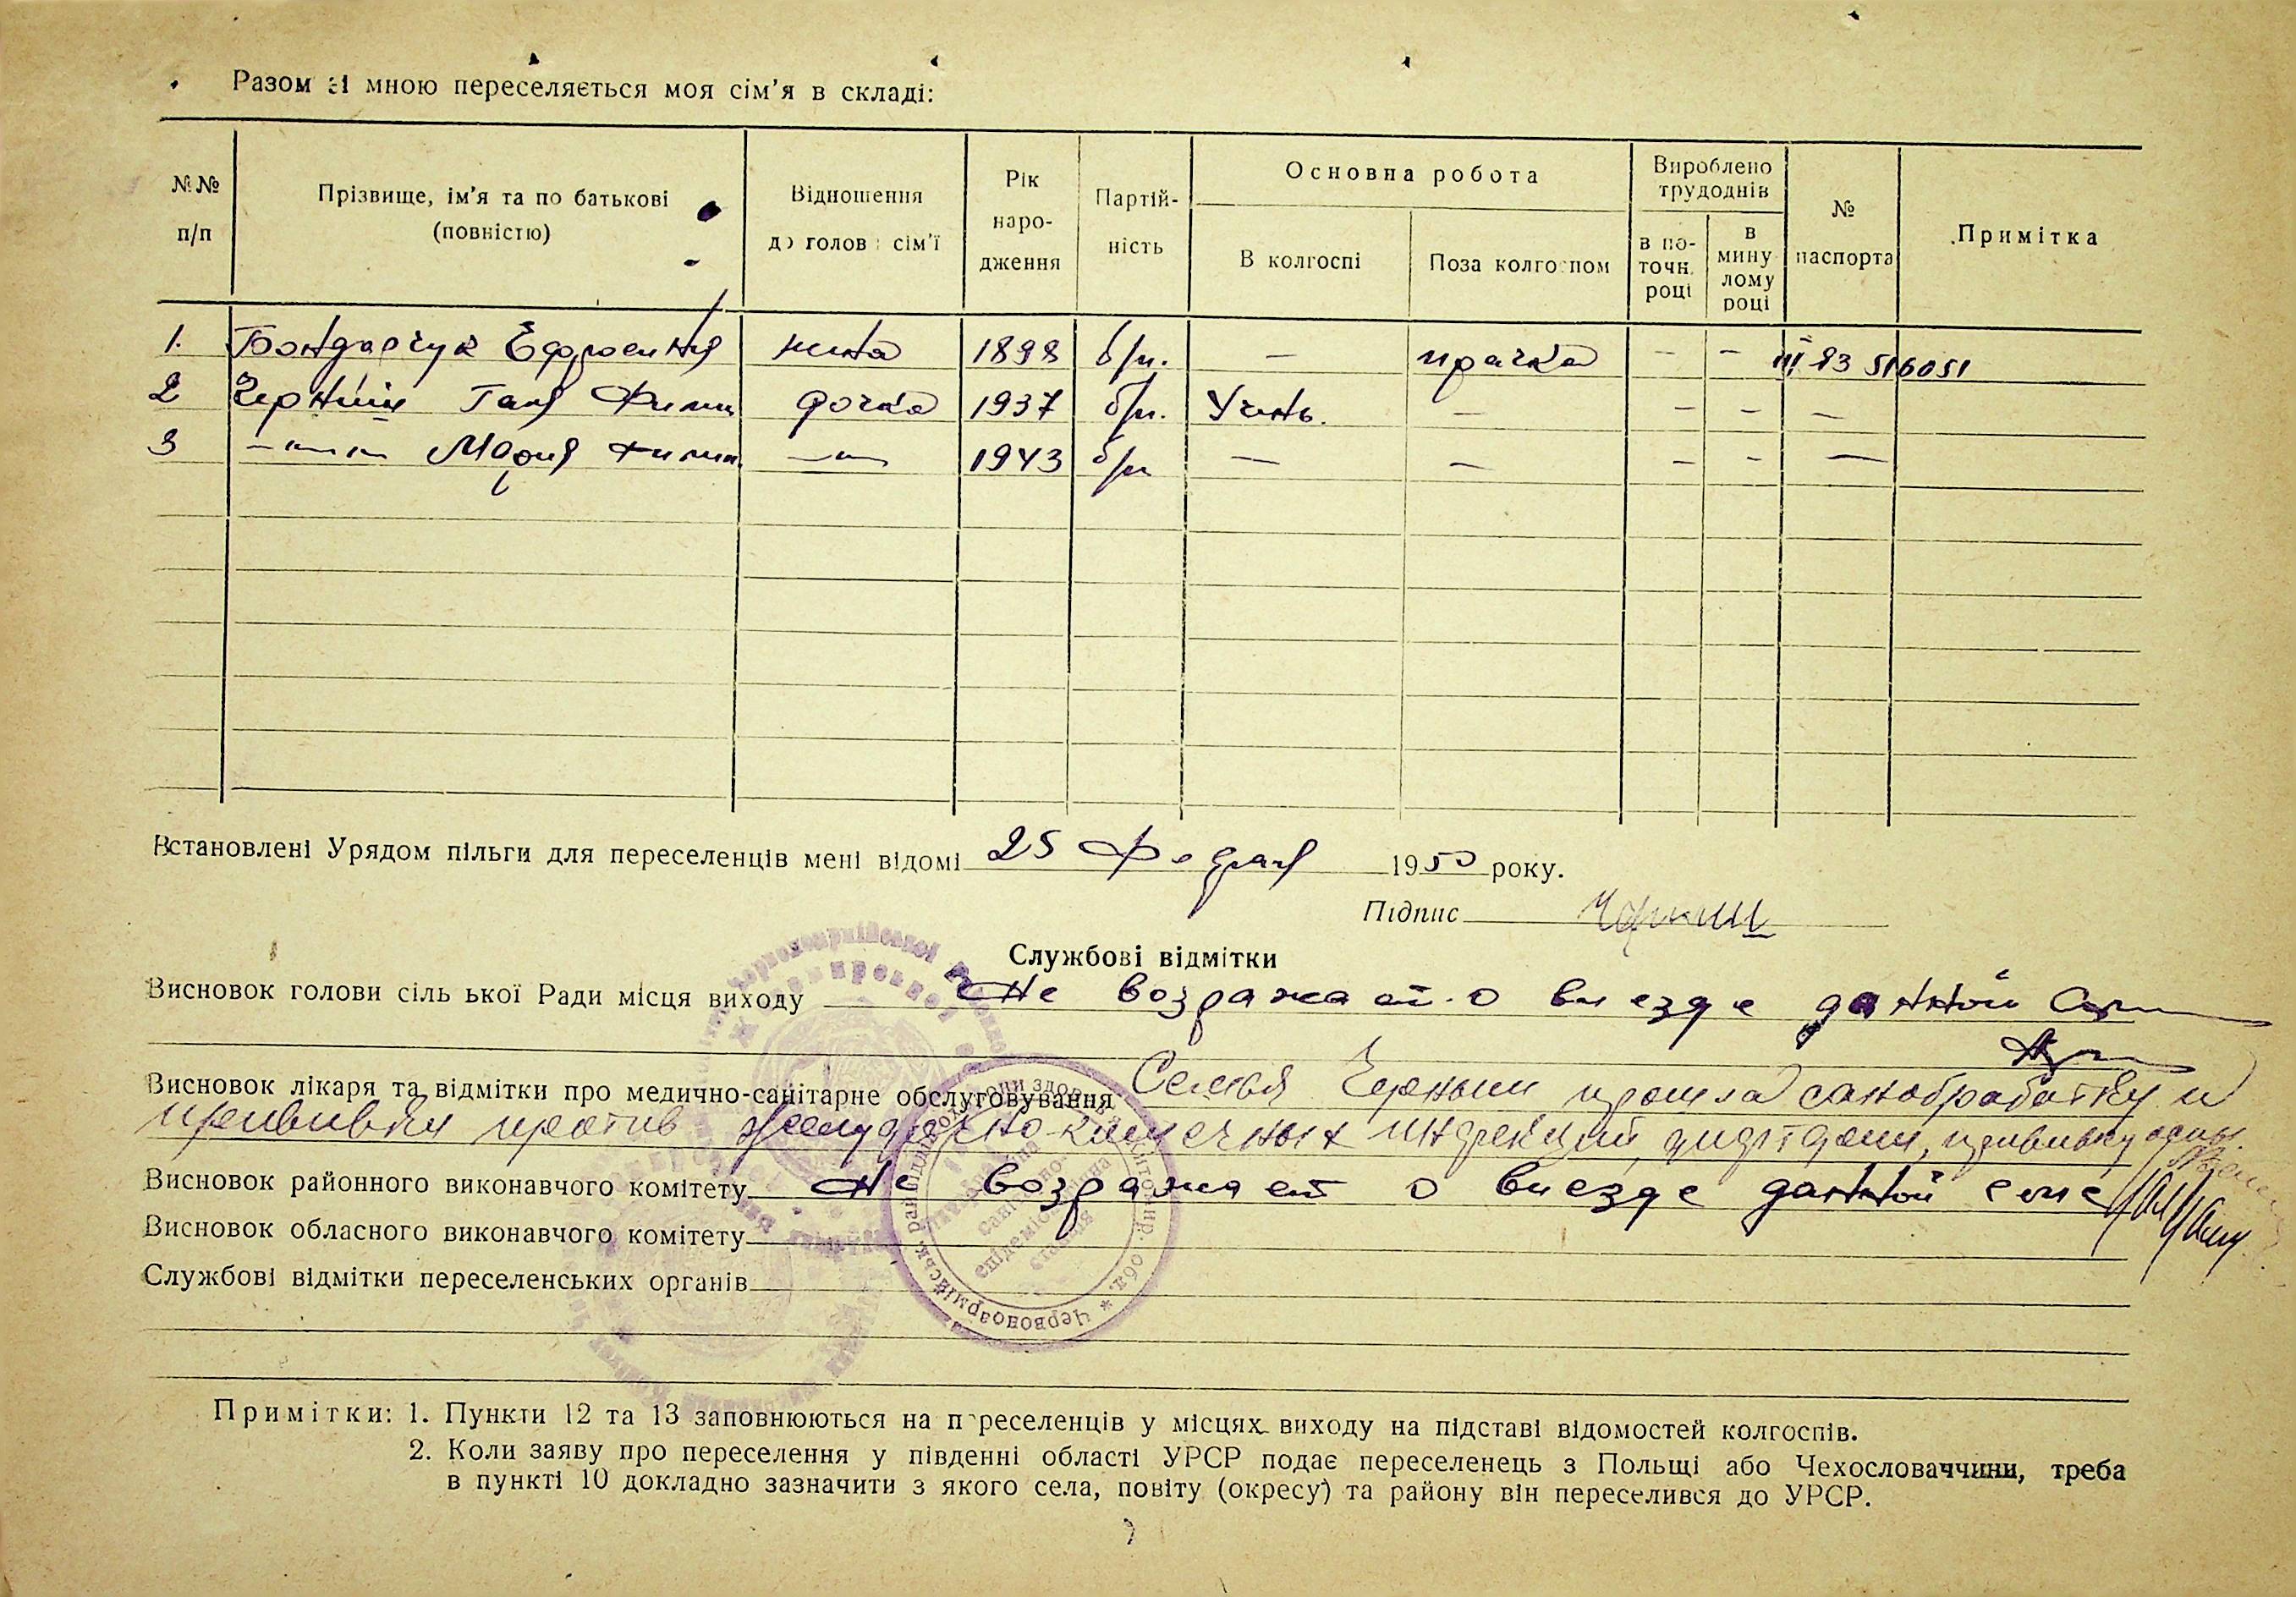 Разом зі мною переселяється моя сім'я в складі:
№№ п/п
Прізвище, ім'я та по батькові (повністю)
Відношення до голови сім'ї
Рік народження
Партій-ність
Основна робота
В колгоспі
Поза колгоспом
Вироблено трудоднів
в по-точн. році
в мину лому році
№ паспорта
Примітка
1. Бондарчук Ефросиния жина 1898 б/п. — прачка — — 516051
2 Черний Ганя Филип дочка 1937 б/п. Учень. — — — —
3 —"— Мария Филип. —"— 1943 б/п — — — — —
Встановлені Урядом пільги для переселенців мені відомі 25 Февраля 1950 року.
Підпис
Службові відмітки
Висновок голови сільської Ради місця виходу Не возражает о виезде данной
Висновок лікаря та відмітки про медично-санітарне обслуговування Семья Черный прошла санобработку и
прививки против желудочно-кишечных инфекций, дифтерии, прививку оспы.
Висновок районного виконавчого комітету Не возражает о виезде данной семе
Висновок обласного виконавчого комітету
Службові відмітки переселенських органів
Примітки: 1. Пункти 12 та 13 заповнюються на переселенців у місцях виходу на підставі відомостей колгоспів.
2. Коли заяву про переселення у південні області УРСР подає переселенець з Польщі або Чехословаччини, треба
в пункті 10 докладно зазначити з якого села, повіту (окресу) та району він переселився до УРСР.